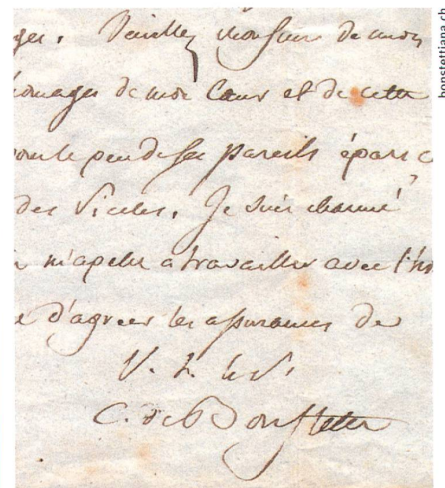 ges. Veuillez Monsieur de mon
omages de mon Cœur et de cette
pour le peu de ses pareils épars
des Siecles. Je suis charmé
m'apelle a travailler avec l'ho
e d'agreer les assurances de
V. h. u. S.
C. de Bonstetten
bonstettiana.ch